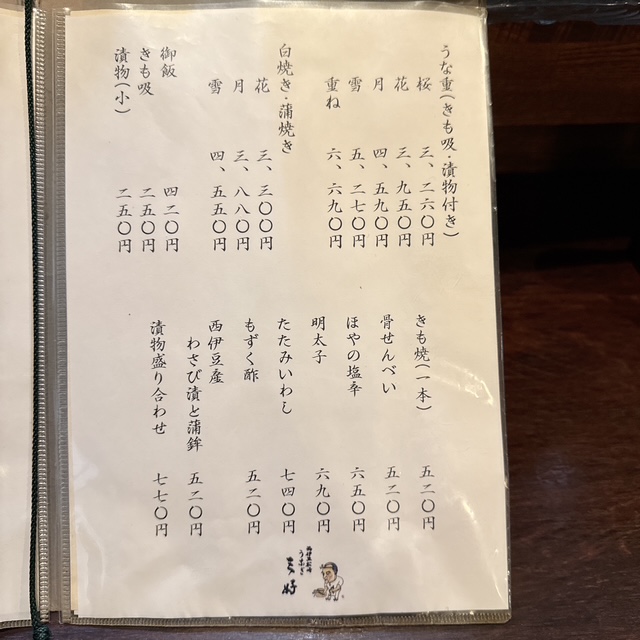 うな重(きも吸・漬物付き)
桜 三、二六〇円
花 三、九五〇円
月 四、五九〇円
雪 五、二七〇円
重ね 六、六九〇円
白焼き・蒲焼き
花 三、三〇〇円
月 三、八八〇円
雪 四、五五〇円
御飯 四二〇円
きも吸 二五〇円
漬物(小) 二五〇円
きも焼(一本) 五二〇円
骨せんべい 五二〇円
ほやの塩辛 六五〇円
明太子 六九〇円
たたみいわし 七四〇円
もずく酢 五二〇円
西伊豆産
わさび漬と蒲鉾 五二〇円
漬物盛り合わせ 七七〇円